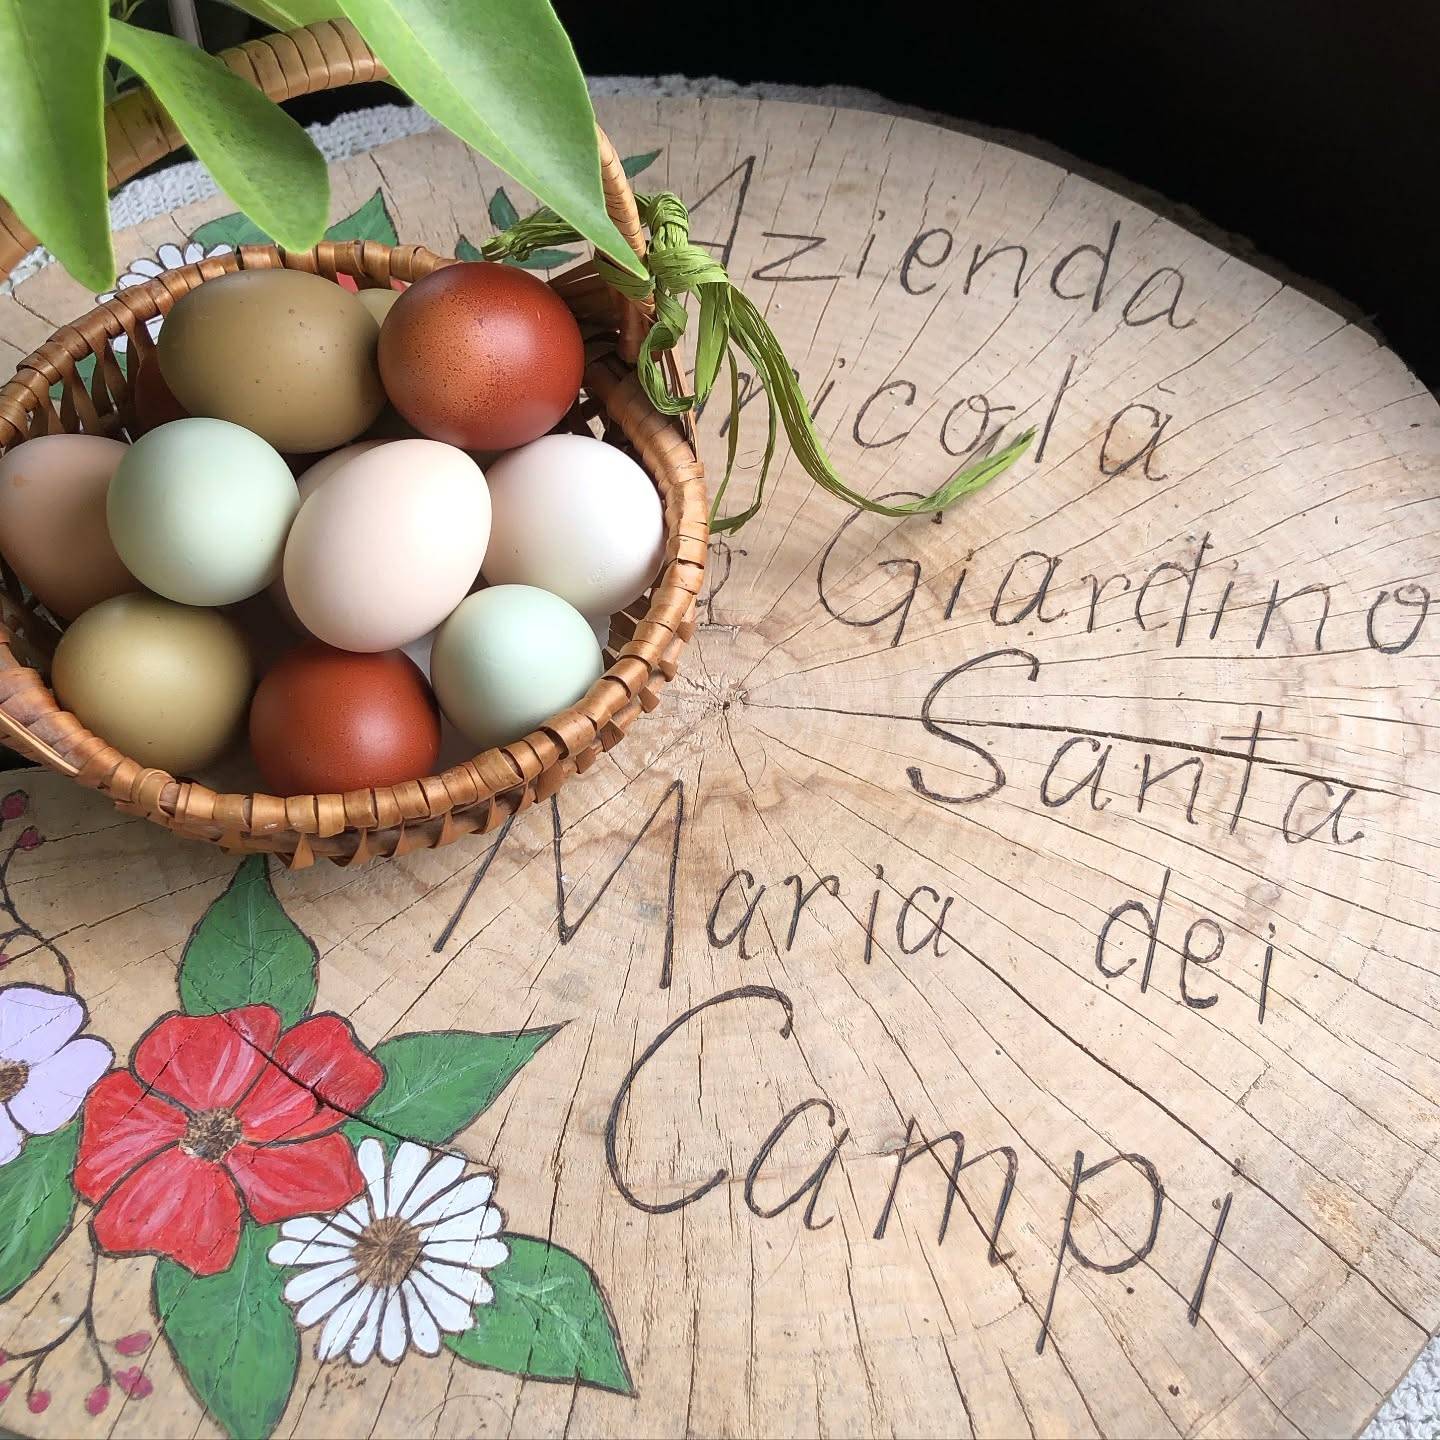 Azienda
ricola
Giardino
Santa
Maria dei
Campi